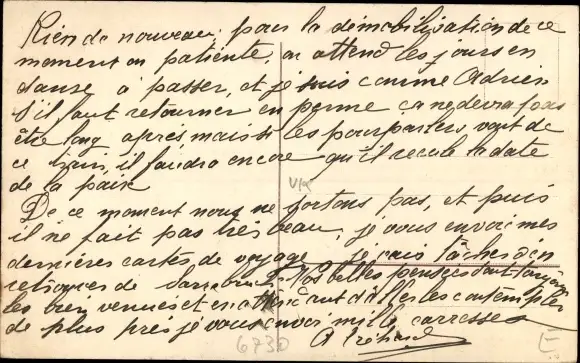 Rien de nouveau, pour la démobilisation de ce
moment on patiente, on attend les jours en
danse à passer, et je suis comme Adrien
s'il faut retourner en perme ca ne devra pas
être long après, mais si les pourparlers vont de
ce train, il faudra encore qu'il recule la date
de la paix
VR
De ce moment nous ne sortons pas, et puis
il ne fait pas très beau, je vous envoi mes
dernières cartes de voyage, je vais tâcher d'en
retrouver de Vos belles pensées sont toujours
les bien venues et en les contempler
de plus près je vous envoi mille caresses
6730
E